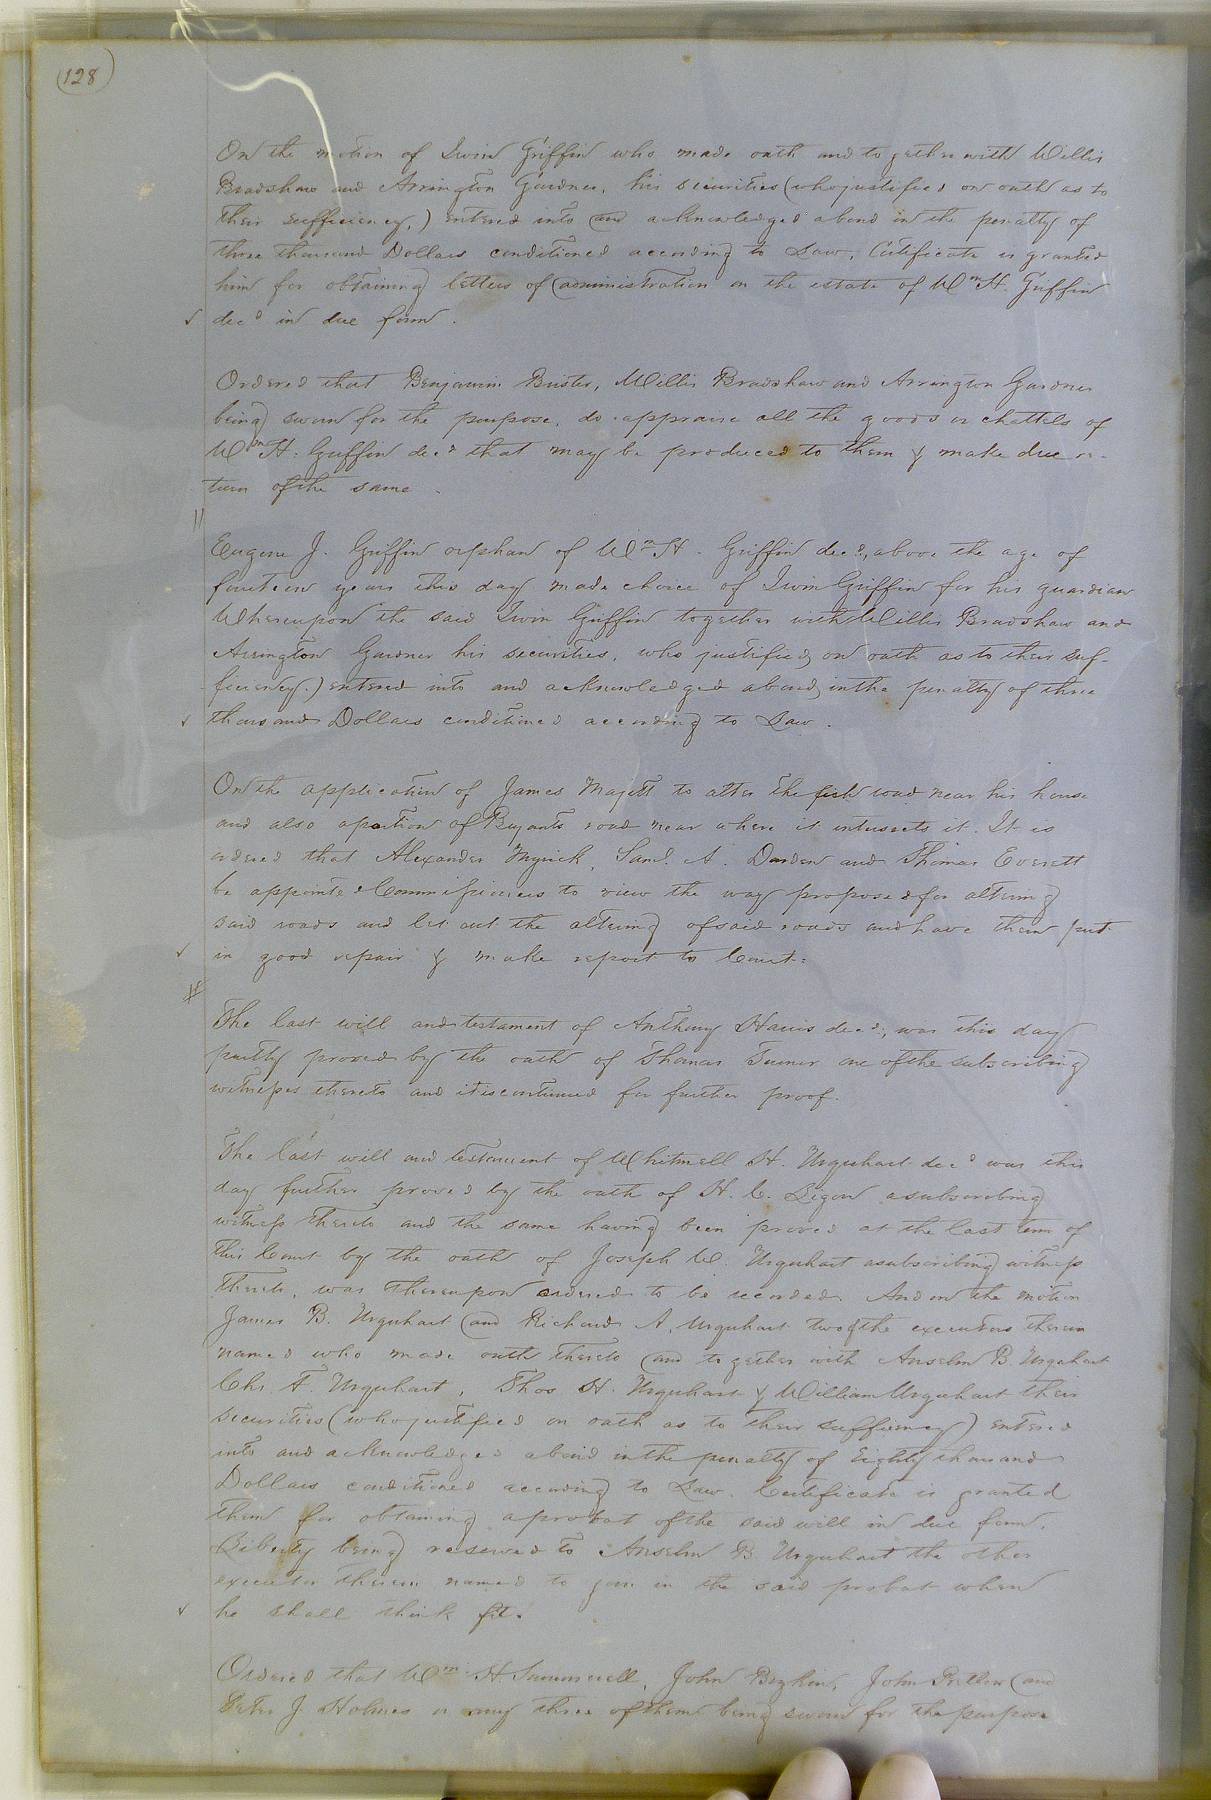 (128)
On the motion of Irvin Griffin who made oath and together with Willis
Bradshaw and Arrington Gardner, his securities (who justified on oath as to
their sufficiency,) entered into and acknowledged a bond in the penalty of
three thousand Dollars conditioned according to Law, Certificate is granted
him for obtaining letters of administration on the estate of Wm H. Griffin
decd in due form.
Ordered that Benjamin Bristo, Willis Bradshaw and Arrington Gardner
being sworn for the purpose, do appraise all the goods or chattels of
Wm H. Griffin decd that may be produced to them & make due re-
turn of the same.
Eugene J. Griffin orphan of Wm H. Griffin decd, above the age of
fourteen years this day made choice of Irvin Griffin for his guardian
Whereupon the said Irvin Griffin together with Willis Bradshaw and
Arrington Gardner his securities, who justified on oath as to their suf-
ficiency.) entered into and acknowledged a bond in the penalty of three
thousand Dollars conditioned according to Law.
On the application of James Majett to alter the road near his house
and also a portion of Bryants road near where it intersects it. It is
ordered that Alexander Myrick, Saml. A. Darden and Thomas Everett
be appointed Commissioners to view the way proposed for altering
said roads and let out the altering of said roads and have them put
in good repair & make report to Court.
The last will and testament of Anthony Harris decd, was this day
partly proved by the oath of Thomas Turner one of the subscribing
witnesses thereto and it is continued for further proof.
The last will and testament of Whitmell H. Urquhart decd was this
day further proved by the oath of H. C. Ligon a subscribing
witness thereto and the same having been proved at the last term of
this Court by the oath of Joseph W. Urquhart a subscribing witness
thereto, was thereupon ordered to be recorded. And on the motion
James B. Urquhart and Richard A. Urquhart two of the executors therein
named who made oath thereto and together with Anselm B. Urquhart
Chs. F. Urquhart, Thos H. Urquhart & William Urquhart their
securities (who justified on oath as to their sufficiency) entered
into and acknowledged a bond in the penalty of Eighty thousand
Dollars conditioned according to Law. Certificate is granted
them for obtaining a probat of the said will in due form.
Liberty being reserved to Anselm B. Urquhart the other
executor therein named to join in the said probat when
he shall think fit.
Ordered that Wm H. Summerell, John John Pretlow and
Peter J. Holmes or any three of them being sworn for the purpose